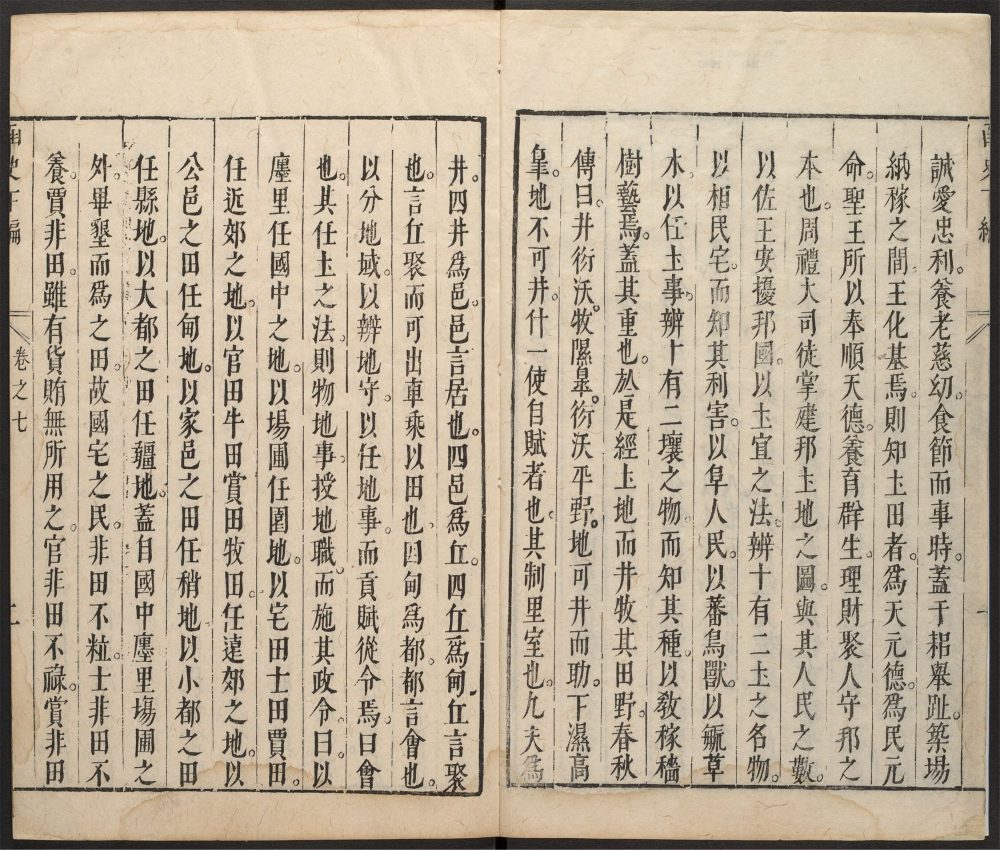 誠愛忠利養老慈幼食節而事時蓋于耜舉趾築場
納稼之間王化基焉則知土田者爲天元德爲民元
命聖王所以奉順天德養育群生理財聚人守邦之
本也周禮大司徒掌建邦土地之圖與其人民之數
以佐王安擾邦國以土宜之法辨十有二土之名物
以相民宅而知其利害以阜人民以蕃鳥獸以毓草
木以任土事辨十有二壤之物而知其種以敎稼穡
樹藝焉蓋其重也於是經土地而井牧其田野春秋
傳曰井衍沃牧隰皐衍沃平野地可井而助下濕高
皐地不可井什一使自賦者也其制里室也九夫爲
函史下編
井四井爲邑邑言居也四邑爲丘四丘爲甸丘言聚
也言丘聚而可出車乘以田也四甸爲都都言會也
以分地域以辨地守以任地事而貢賦從令焉曰會
也其任土之法則物地事授地職而施其政令曰以
廛里任國中之地以場圃任園地以宅田士田賈田
任近郊之地以官田牛田賞田牧田任遠郊之地以
公邑之田任甸地以家邑之田任稍地以小都之田
任縣地以大都之田任疆地蓋自國中廛里場圃之
外畢墾而爲之田故國宅之民非田不粒士非田不
養賈非田雖有貨賄無所用之官非田不祿賞非田
函史下編 卷之七 二